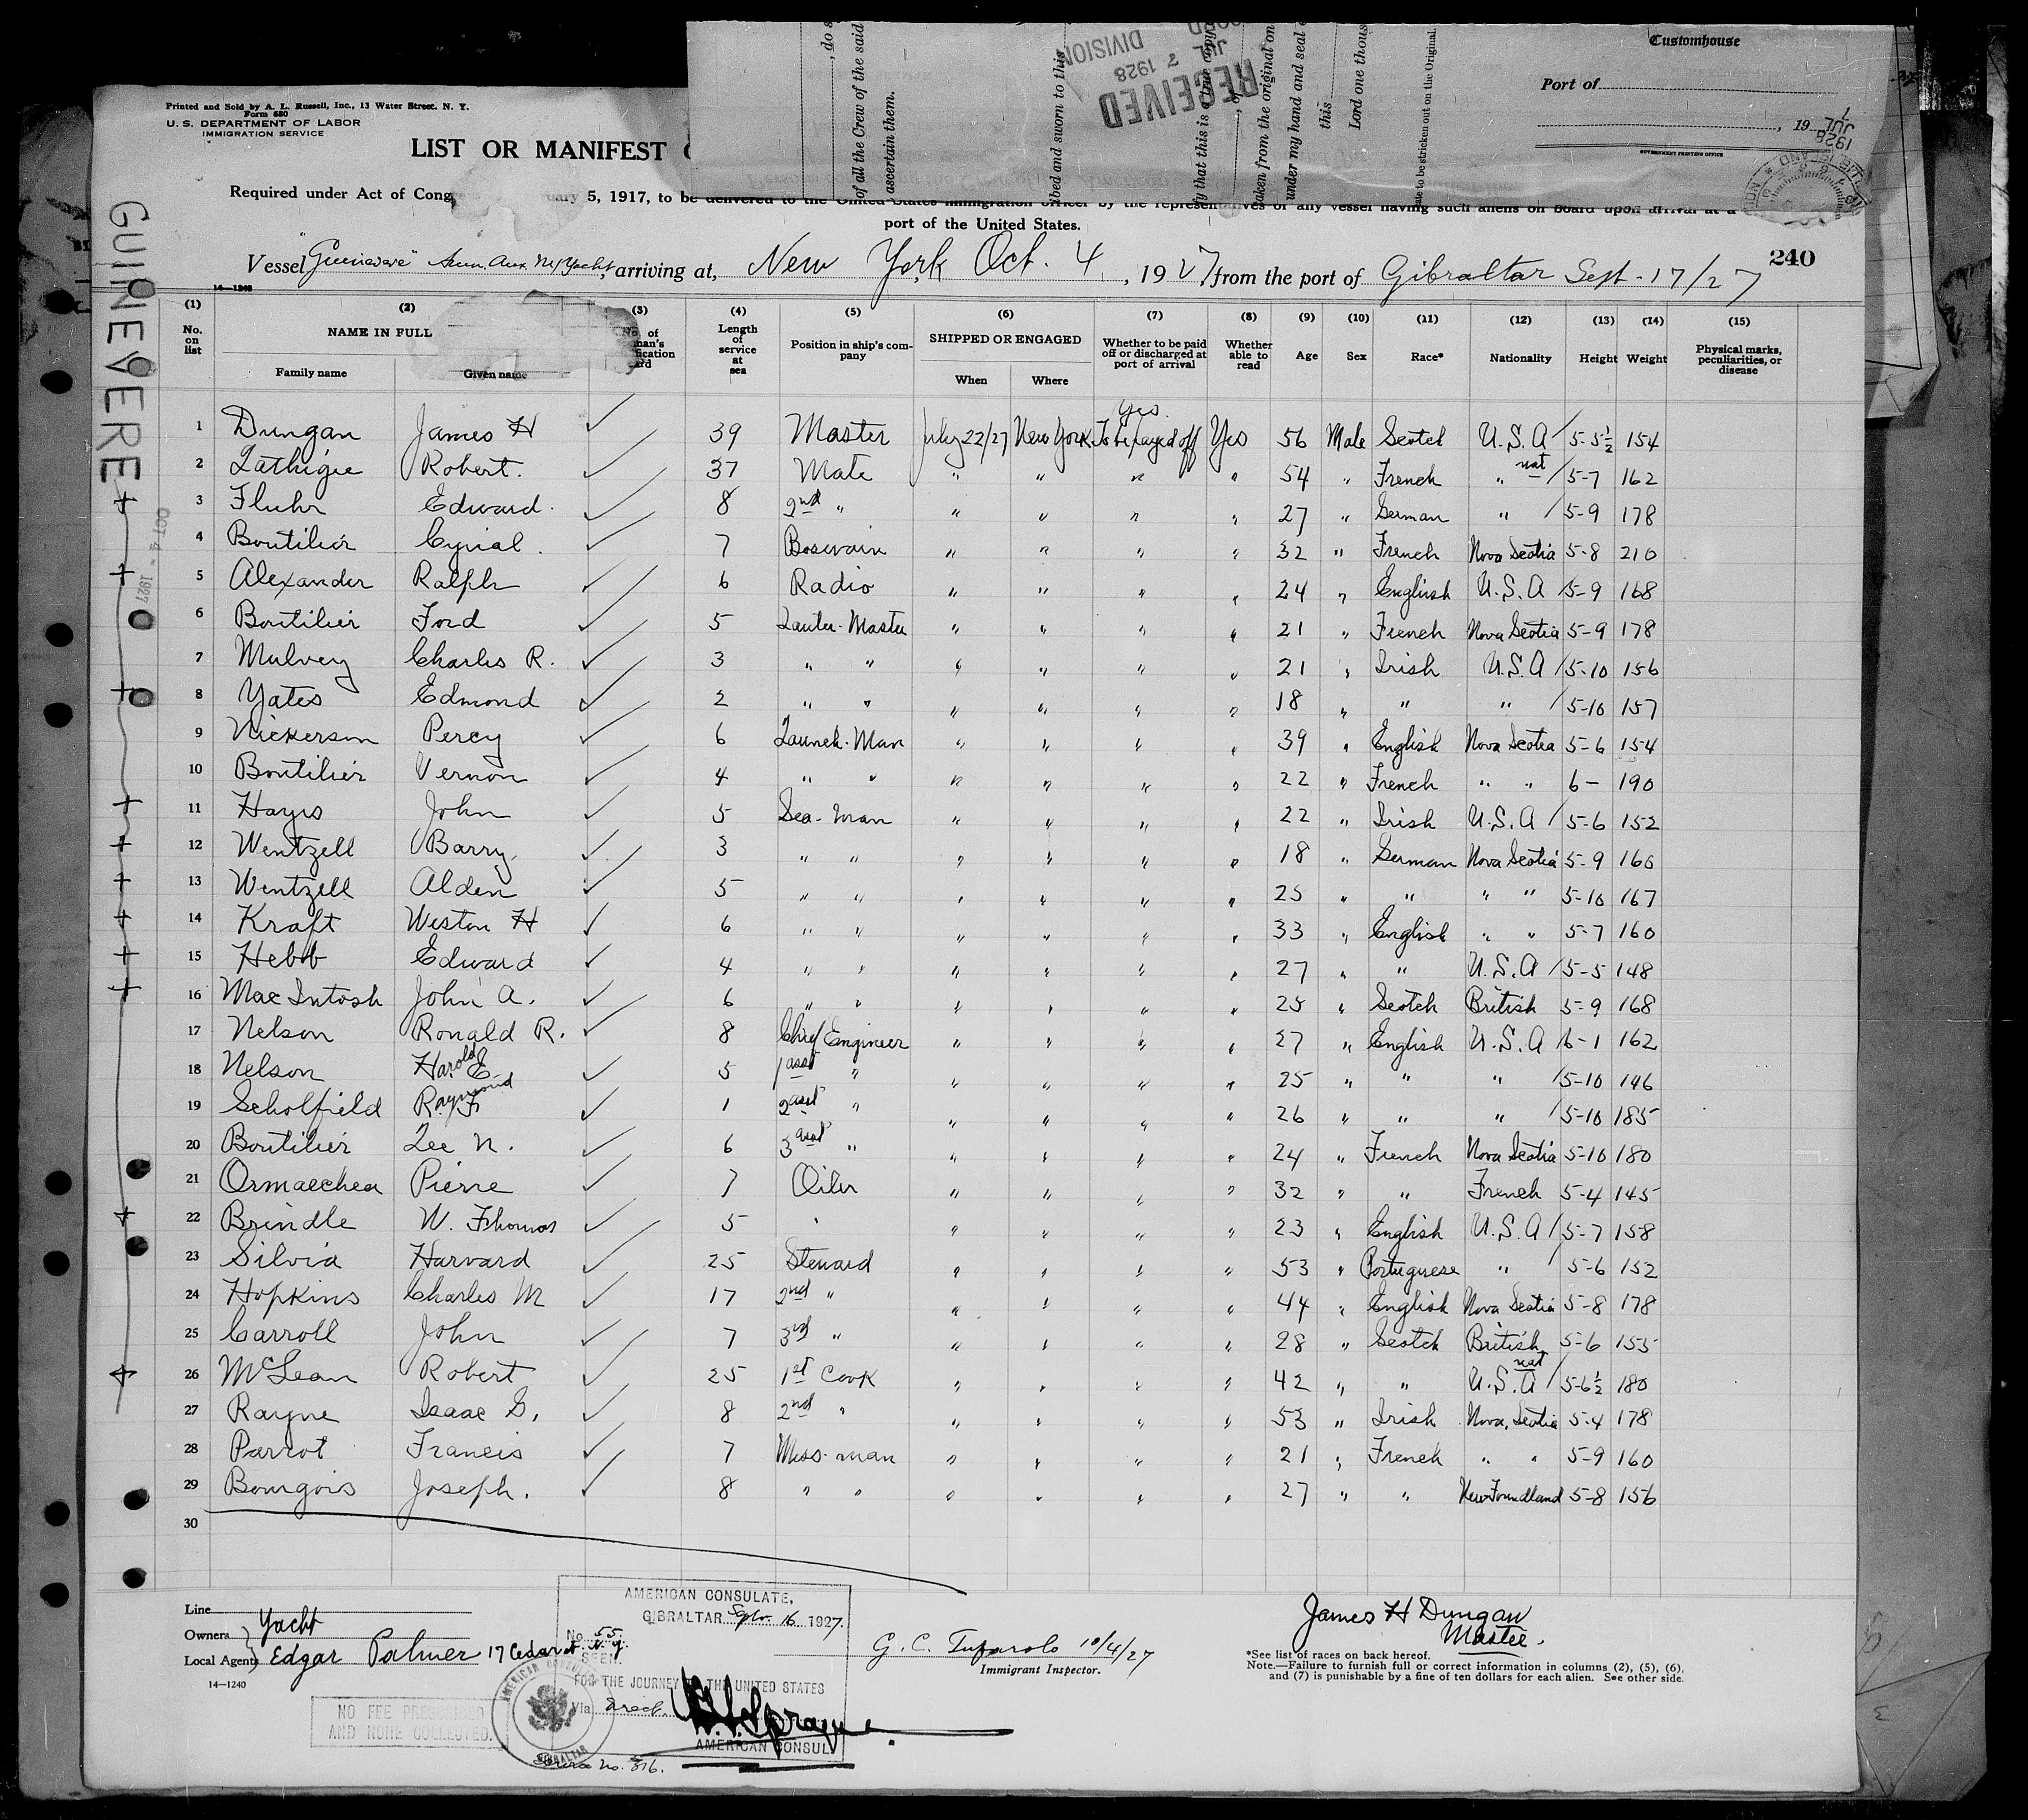 Customhouse
Port of
, 19
GOVERNMENT PRINTING OFFICE
JUL 7 1928
, do s
of all the Crew of the said
ascertain them.
ibed and sworn to this
y that this is a true copy
, of
taken from the original on
under my hand and seal o
this
Lord one thous
ate to be stricken out on the Original.
RECEIVED
JUL 7 1928
DIVISION
Printed and Sold by A. L. Russell, Inc., 13 Water Street. N. Y.
Form 680
U. S. DEPARTMENT OF LABOR
IMMIGRATION SERVICE
LIST OR MANIFEST
Required under Act of Cong uary 5, 1917, to be delivered to the United States immigration officer by the representatives of any vessel having such aliens on board upon arrival at a
port of the United States.
240
Vessel "Guinevere" Aux. Yacht, arriving at, New York Oct. 4, 1927, from the port of Gibraltar Sept-17/27
14—1240
GUINEVERE
OCT 4 - 1927
(1) (2) (3) (4) (5) (6) (7) (8) (9) (10) (11) (12) (13) (14) (15)
No. on list NAME IN FULL No. of man's fication ard Length of service at sea Position in ship's company SHIPPED OR ENGAGED Whether to be paid off or discharged at port of arrival Whether able to read Age Sex Race* Nationality Height Weight Physical marks, peculiarities, or disease
Family name Given name When Where
1 Dungan James H ✓ 39 Master July 22/27 New York Yes. To be payed off Yes 56 Male Scotch U.S.A / 5-5½ 154
2 Lathigie Robert. ✓ 37 Mate " " " " 54 " French " nat / 5-7 162
3 Fluhr Edward. ✓ 8 2nd " " " " " 27 " German " / 5-9 178
4 Boutilier Cyrial. ✓ 7 Boswain " " " " 32 " French Nova Scotia 5-8 210
5 Alexander Ralph ✓ 6 Radio " " " " 24 " English U.S.A / 5-9 168
6 Boutilier Ford ✓ 5 Quater-Master " " " " 21 " French Nova Scotia 5-9 178
7 Mulvey Charles R. ✓ 3 " " " " " " 21 " Irish U.S.A / 5-10 156
8 Yates Edmond ✓ 2 " " " " " " 18 " " " / 5-10 157
9 Nickerson Percy ✓ 6 Launch-Man " " " " 39 " English Nova Scotia 5-6 154
10 Boutilier Vernon ✓ 4 " " " " " " 22 " French " " 6- 190
11 Hayes John ✓ 5 Sea-man " " " " 22 " Irish U.S.A / 5-6 152
12 Wentzell Barry, ✓ 3 " " " " " " 18 " German Nova Scotia 5-9 160
13 Wentzell Alden ✓ 5 " " " " " " 25 " " " " 5-10 167
14 Kraft Weston H ✓ 6 " " " " " " 33 " English " " 5-7 160
15 Hebb Edward ✓ 4 " " " " " " 27 " " U.S.A / 5-5 148
16 MacIntosh John A. ✓ 6 " " " " " " 25 " Scotch British 5-9 168
17 Nelson Ronald R. ✓ 8 Chief Engineer " " " " 27 " English U.S.A / 6-1 162
18 Nelson Harold E. ✓ 5 1 asst " " " " " 25 " " " / 5-10 146
19 Scholfield Raymond F ✓ 1 2 asst " " " " " 26 " " " / 5-10 185
20 Boutilier Lee N. ✓ 6 3 asst " " " " " 24 " French Nova Scotia 5-10 180
21 Ormaechea Pierre ✓ 7 Oiler " " " " 32 " " French 5-4 145
22 Brindle W. Thomas ✓ 5 " " " " " 23 " English U.S.A / 5-7 158
23 Silvia Harvard ✓ 25 Steward " " " " 53 " Portuguese " / 5-6 152
24 Hopkins Charles M ✓ 17 2nd " " " " " 44 " English Nova Scotia 5-8 178
25 Carroll John ✓ 7 3rd " " " " " 28 " Scotch British 5-6 155
26 McLean Robert ✓ 25 1st Cook " " " " 42 " " U.S.A nat / 5-6½ 180
27 Rayne Isaac G. ✓ 8 2nd " " " " " 53 " Irish Nova Scotia 5-4 178
28 Parrot Francis ✓ 7 Mess-man " " " " 21 " French " " 5-9 160
29 Bourgois Joseph. ✓ 8 " " " " " " 27 " " NewFoundland 5-8 156
30
Line
Owners } Yacht
Local Agents } Edgar Palmer 17 Cedar st N.Y.
14—1240
AMERICAN CONSULATE,
GIBRALTAR Sept. 16 1927.
No. 55
SEEN
FOR THE JOURNEY TO THE UNITED STATES
Via direct
Sprague
AMERICAN CONSUL
Service No. 316.
AMERICAN CONSULATE GIBRALTAR
NO FEE PRESCRIBED
AND NONE COLLECTED.
G. C. Tufarolo 10/4/27
Immigrant Inspector.
James H Dungan
Master.
*See list of races on back hereof.
Note.—Failure to furnish full or correct information in columns (2), (5), (6),
and (7) is punishable by a fine of ten dollars for each alien. See other side.